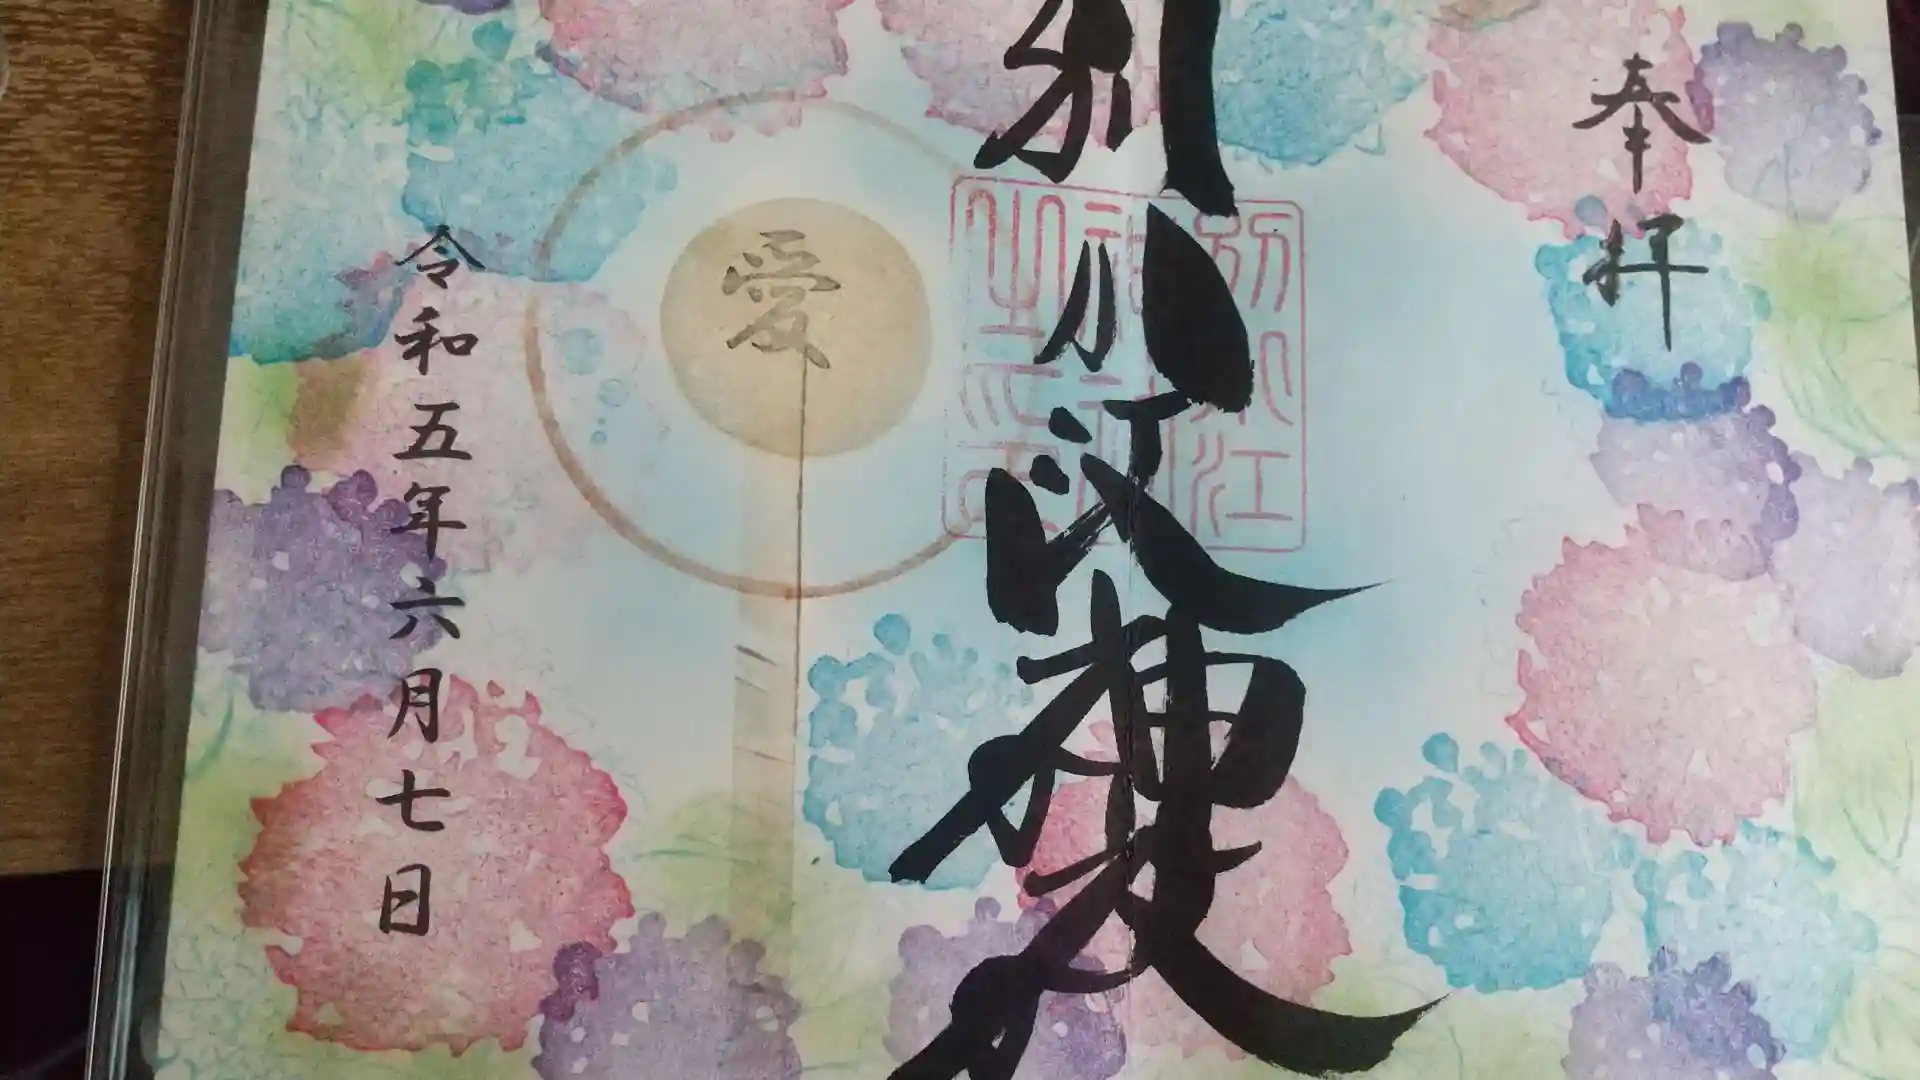 奉拝
別小江神社
愛
令和五年六月七日